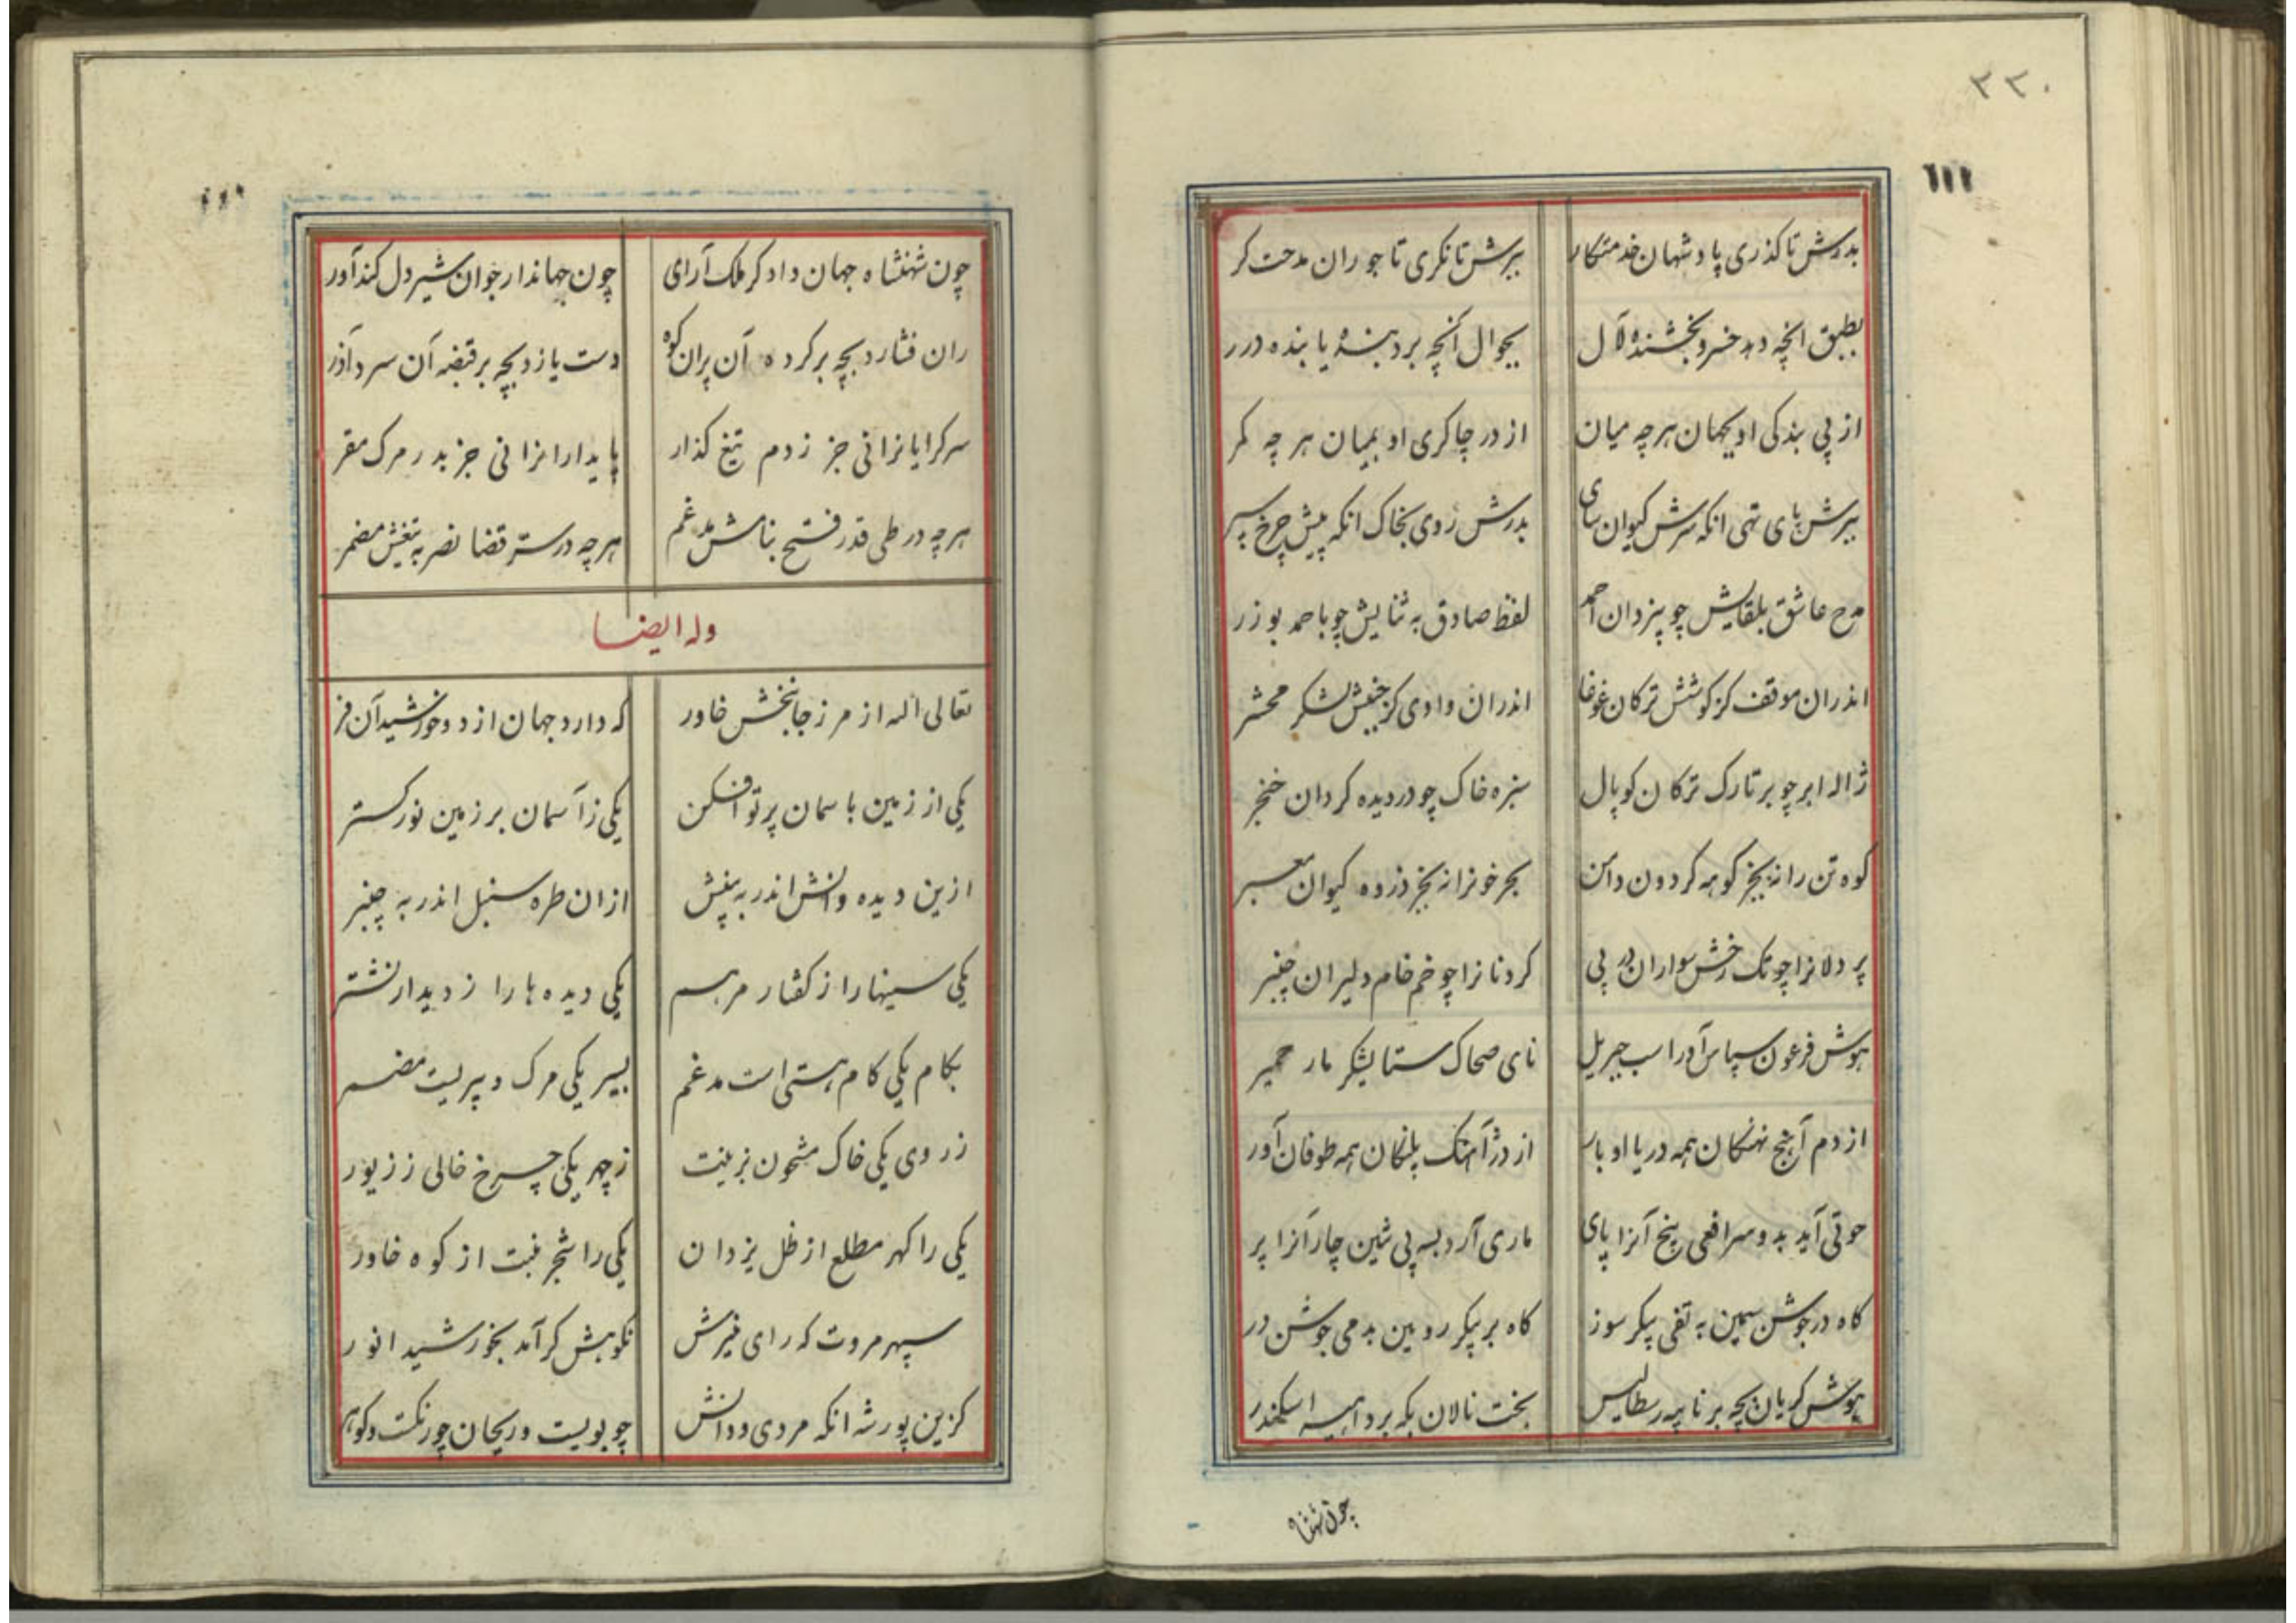 ۳۳۰
بدرش تا گذری پادشهان خدمتکار ببرش تا نکری تاجوران مدحت کر
بطبق انچه دهد خسرو بخشنده لآل بجوال آنچه برد بنده یابنده درر
از پی بندکی او بجهان هر چه میان از در چاکری او بمیان هر چه کمر
ببرش پای تهی انکه سرش کیوان سای بدرش روی بخاک انکه پیش چرخ سپر
مدح عاشق بلقایش چو بیزدان احمد لفظ صادق به ثنایش چو باحمد بوذر
اندران موقف کز کوشش ترکان غوغا اندران وادی کز جنبش لشکر محشر
ژاله ابر چو بر تارک ترکان کوپال سبزه خاک چو در دیده کردان خنجر
کوه تن را نه بجز کوهه کردون دامن بحر خونرا نه بجز ذروه کیوان معبر
پر دلانرا چو تک رخش سواران در پی کردنانرا چو خم خام دلیران چنبر
هوش فرعون سپاس آور اسب جبریل نای ضحاک ستایشکر مار حمیر
از دم آهنج نهنکان همه دریا اوبار از دژ آهنک پلنکان همه طوفان آور
حوتی آید بدو سر افعی پنج آنرا پای ماری آرد بسه پی شین چار آنرا پر
کاه در جوشن سیمین به تفی پیکر سوز کاه بر پیکر رویین بدمی جوشن در
هوش کریان بچه بر نامه رسطالیس بخت نالان بکه بر داهیه اسکندر
چون شهنشاه
چون شهنشاه جهان دادکر ملک آرای چون جهاندار جوان شیر دل کندآور
ران فشارد بچه بر کرده آن پران کوه دست یازد بچه بر قبضه آن سرد آذر
سرکرایانرا نی جز ز دم تیغ کذار پایدارانرا نی جز بدر مرک مقر
هر چه در طی قدر فتح بنامش مدغم هر چه در ستر قضا نصر به تیغش مضمر
وله ایضا
تعالی اله از مرز جانبخش خاور که دارد جهان از دو خورشید آن فر
یکی از زمین باسمان پرتو افکن یکی زآسمان بر زمین نور کستر
ازین دیده دانش اندر به بینش ازان طره سنبل اندر به چنبر
یکی سینها را ز کفتار مرهم یکی دیده ها را ز دیدار نشتر
بکام یکی کام هستی است مدغم بسیر یکی مرک و پیریست مضمر
ز روی یکی خاک مشحون بزینت ز چهر یکی چرخ خالی ز زیور
یکی را کهر مطلع از ظل یزدان یکی را شجر نبت از کوه خاور
سپهر مروت که رای منیرش نکوهش کر آمد بخورشید انور
کزین پور شه انکه مردی و دانش چو بویست و ریحان چو رنکست و کوهر